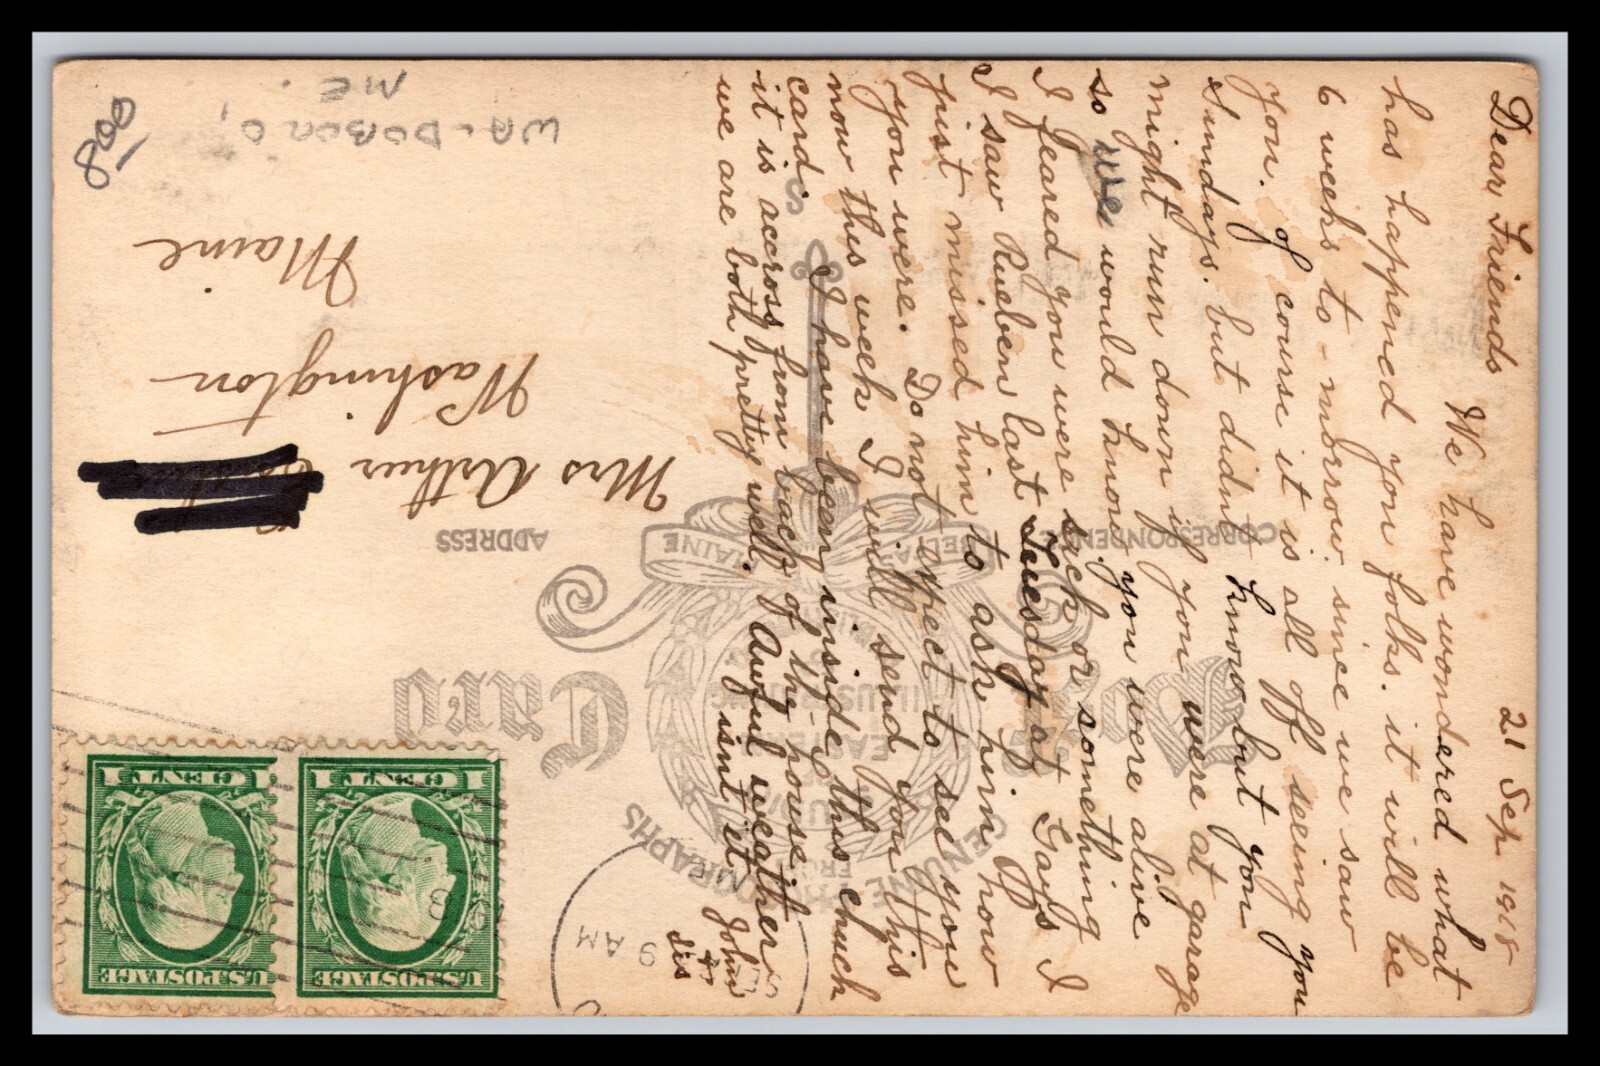 21 Sep 1918
Dear Friends
We have wondered what
has happened you folks. it will be
6 weeks to-morrow. since we saw
you. of course it is all off seeing you
Sundays. but didnt know but you
might run down if you were at garage
so we would know you were alive
I feared you were sick or something
I saw Rueben last Tuesday at Gay's I
just missed him to ask him how
you were. Do not expect to see you
now this week I will send you this
card. I have been inside this church
it is accross from back of the house.
we are both pretty well. Awful weather
isnt it John
+
Sis
POST CARD
CORRESPONDENCE
ADDRESS
GENUINE PHOTOGRAPHS
FROM
ILLUSTRATING
EASTERN
BELFAST MAINE
Mrs Arthur
Washington
Maine
WALDOBORO,
ME.
800
SEP
9 AM
U.S. POSTAGE
1 CENT 1
U.S. POSTAGE
1 CENT 1